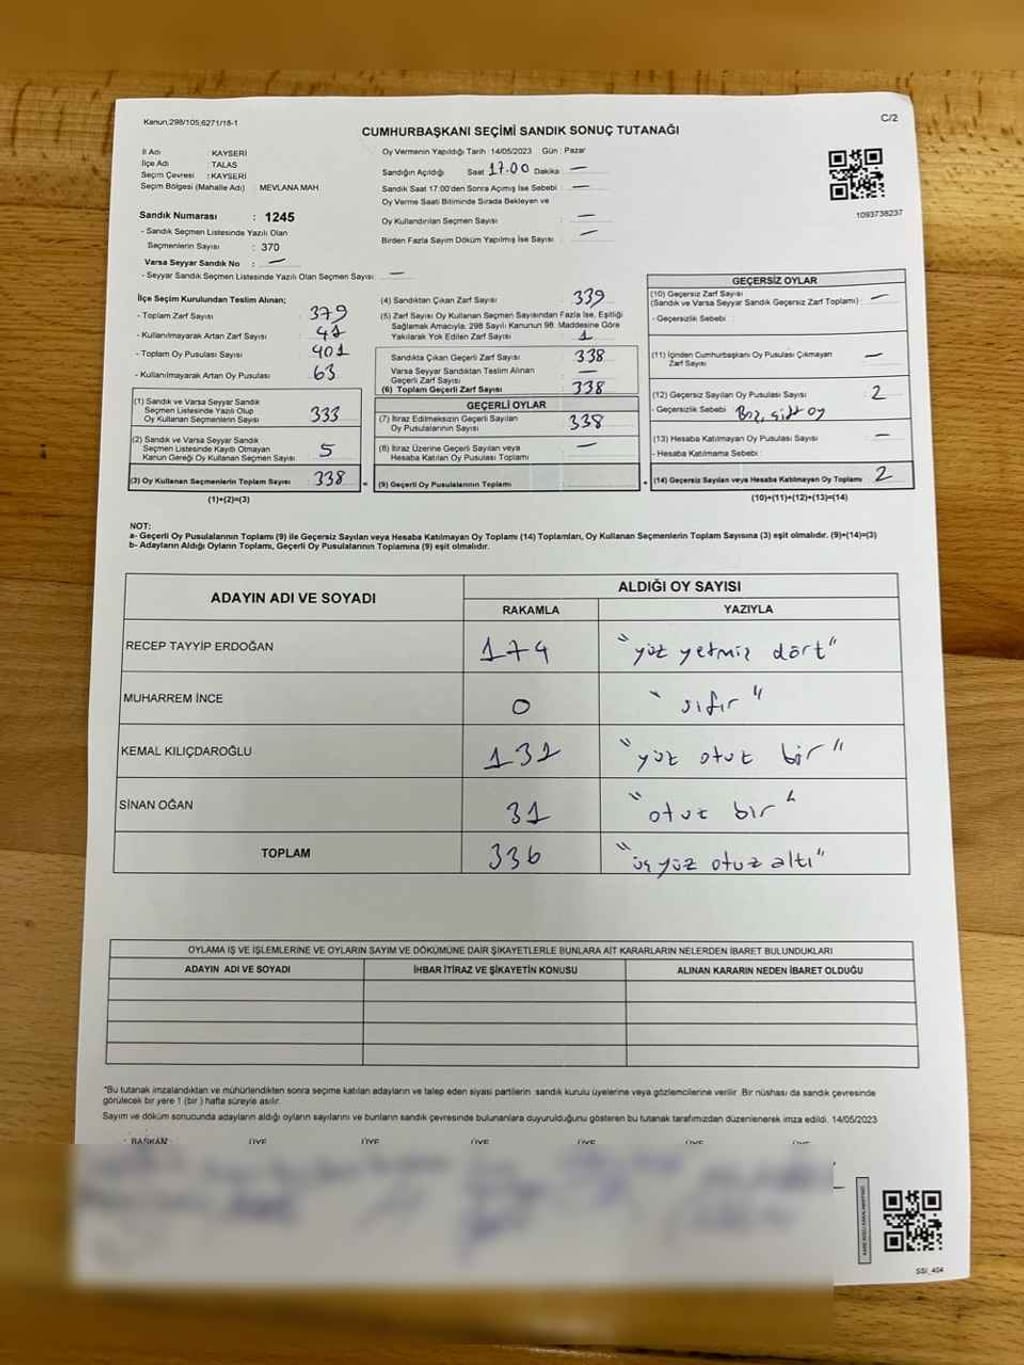 Kanun,298/105,6271/18-1
C/2
CUMHURBAŞKANI SEÇİMİ SANDIK SONUÇ TUTANAĞI
İl Adı : KAYSERİ
İlçe Adı : TALAS
Seçim Çevresi : KAYSERİ
Seçim Bölgesi (Mahalle Adı) MEVLANA MAH
Sandık Numarası : 1245
- Sandık Seçmen Listesinde Yazılı Olan
Seçmenlerin Sayısı : 370
Varsa Seyyar Sandık No : —
- Seyyar Sandık Seçmen Listesinde Yazılı Olan Seçmen Sayısı: —
Oy Vermenin Yapıldığı Tarih :14/05/2023 Gün : Pazar
Sandığın Açıldığı Saat 17.00 Dakika —
Sandık Saat 17:00'den Sonra Açımış İse Sebebi : —
Oy Verme Saati Bitiminde Sırada Bekleyen ve
Oy Kullandırılan Seçmen Sayısı : —
Birden Fazla Sayım Döküm Yapılmış İse Sayısı : —
1093738237
İlçe Seçim Kurulundan Teslim Alınan;
- Toplam Zarf Sayısı : 379
- Kullanılmayarak Artan Zarf Sayısı : 41
- Toplam Oy Pusulası Sayısı : 401
- Kullanılmayarak Artan Oy Pusulası : 63
(1) Sandık ve Varsa Seyyar Sandık
Seçmen Listesinde Yazılı Olup
Oy Kullanan Seçmenlerin Sayısı : 333
(2) Sandık ve Varsa Seyyar Sandık
Seçmen Listesinde Kayıtlı Olmayan
Kanun Gereği Oy Kullanan Seçmen Sayısı : 5
(3) Oy Kullanan Seçmenlerin Toplam Sayısı : 338
(1)+(2)=(3)
(4) Sandıktan Çıkan Zarf Sayısı : 339
(5) Zarf Sayısı Oy Kullanan Seçmen Sayısından Fazla İse, Eşitliği
Sağlamak Amacıyla, 298 Sayılı Kanunun 98. Maddesine Göre
Yakılarak Yok Edilen Zarf Sayısı : 1
Sandıkta Çıkan Geçerli Zarf Sayısı : 338
Varsa Seyyar Sandıktan Teslim Alınan
Geçerli Zarf Sayısı : —
(6) Toplam Geçerli Zarf Sayısı : 338
GEÇERLİ OYLAR
(7) İtiraz Edilmeksizin Geçerli Sayılan
Oy Pusulalarının Sayısı : 338
(8) İtiraz Üzerine Geçerli Sayılan veya
Hesaba Katılan Oy Pusulası Toplamı : —
= (9) Geçerli Oy Pusulalarının Toplamı :
GEÇERSİZ OYLAR
(10) Geçersiz Zarf Sayısı
(Sandık ve Varsa Seyyar Sandık Geçersiz Zarf Toplamı) : —
- Geçersizlik Sebebi :
(11) İçinden Cumhurbaşkanı Oy Pusulası Çıkmayan
Zarf Sayısı : —
(12) Geçersiz Sayılan Oy Pusulası Sayısı : 2
- Geçersizlik Sebebi : Boş, çift oy
(13) Hesaba Katılmayan Oy Pusulası Sayısı : —
- Hesaba Katılmama Sebebi :
+ (14) Geçersiz Sayılan veya Hesaba Katılmayan Oy Toplamı : 2
(10)+(11)+(12)+(13)=(14)
NOT:
a- Geçerli Oy Pusulalarının Toplamı (9) ile Geçersiz Sayılan veya Hesaba Katılmayan Oy Toplamı (14) Toplamları, Oy Kullanan Seçmenlerin Toplam Sayısına (3) eşit olmalıdır. (9)+(14)=(3)
b- Adayların Aldığı Oyların Toplamı, Geçerli Oy Pusulalarının Toplamına (9) eşit olmalıdır.
ADAYIN ADI VE SOYADI
ALDIĞI OY SAYISI
RAKAMLA YAZIYLA
RECEP TAYYİP ERDOĞAN 174 "yüz yetmiş dört"
MUHARREM İNCE 0 "sıfır"
KEMAL KILIÇDAROĞLU 131 "yüz otuz bir"
SİNAN OĞAN 31 "otuz bir"
TOPLAM 336 "üç yüz otuz altı"
OYLAMA İŞ VE İŞLEMLERİNE VE OYLARIN SAYIM VE DÖKÜMÜNE DAİR ŞİKAYETLERLE BUNLARA AİT KARARLARIN NELERDEN İBARET BULUNDUKLARI
ADAYIN ADI VE SOYADI İHBAR İTİRAZ VE ŞİKAYETİN KONUSU ALINAN KARARIN NEDEN İBARET OLDUĞU
*Bu tutanak imzalandıktan ve mühürlendikten sonra seçime katılan adayların ve talep eden siyasi partilerin sandık kurulu üyelerine veya gözlemcilerine verilir. Bir nüshası da sandık çevresinde
görülecek bir yere 1 (bir) hafta süreyle asılır.
Sayım ve döküm sonucunda adayların aldığı oyların sayılarını ve bunların sandık çevresinde bulunanlara duyurulduğunu gösteren bu tutanak tarafımızdan düzenlenerek imza edildi. 14/05/2023
BAŞKAN ÜYE ÜYE ÜYE ÜYE ÜYE ÜYE
SSI_404